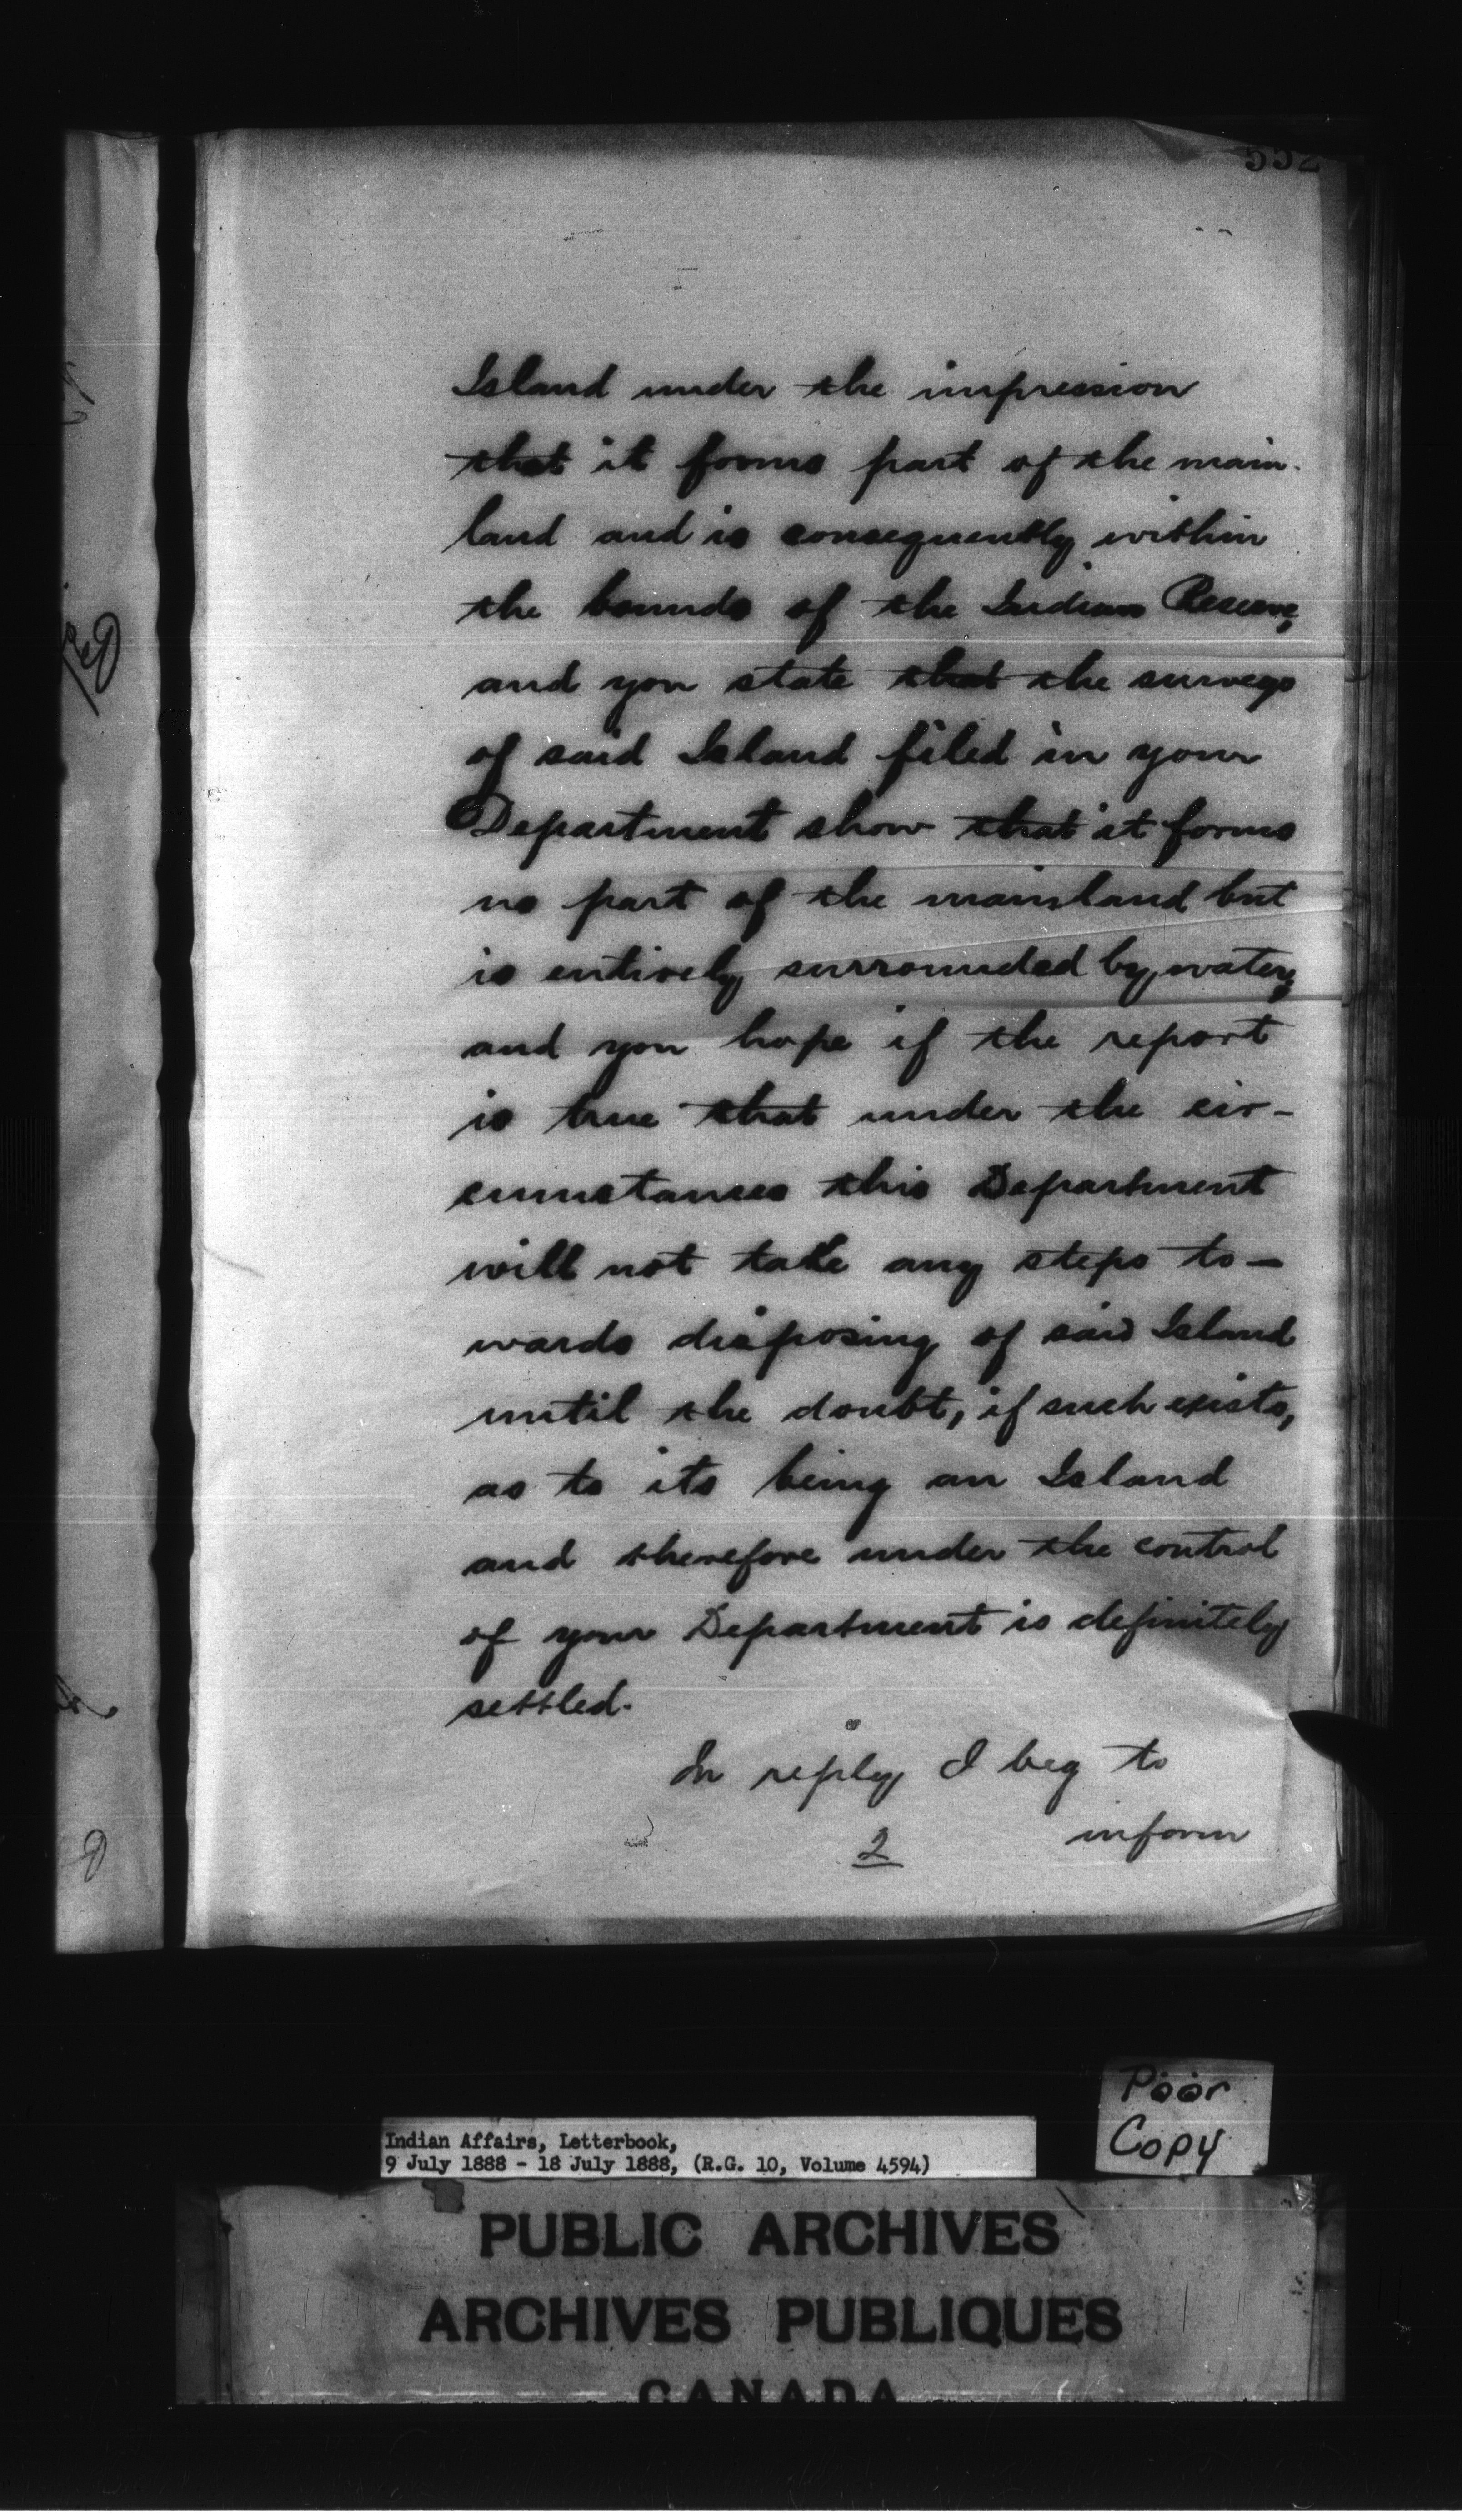 552
Island under the impression
that it forms part of the main-
land and is consequently within
the bounds of the Indian Reserve,
and you state that the surveys
of said Island filed in your
Department show that it forms
no part of the mainland but
is entirely surrounded by water,
and you hope if the report
is true that under the cir-
cumstances this Department
will not take any steps to-
wards disposing of said Island
until the doubt, if such exists,
as to its being an Island
and therefore under the control
of your Department is definitely
settled.
In reply I beg to
inform
2
Poor
Copy
Indian Affairs, Letterbook,
9 July 1888 - 18 July 1888, (R.G. 10, Volume 4594)
PUBLIC ARCHIVES
ARCHIVES PUBLIQUES
CANADA